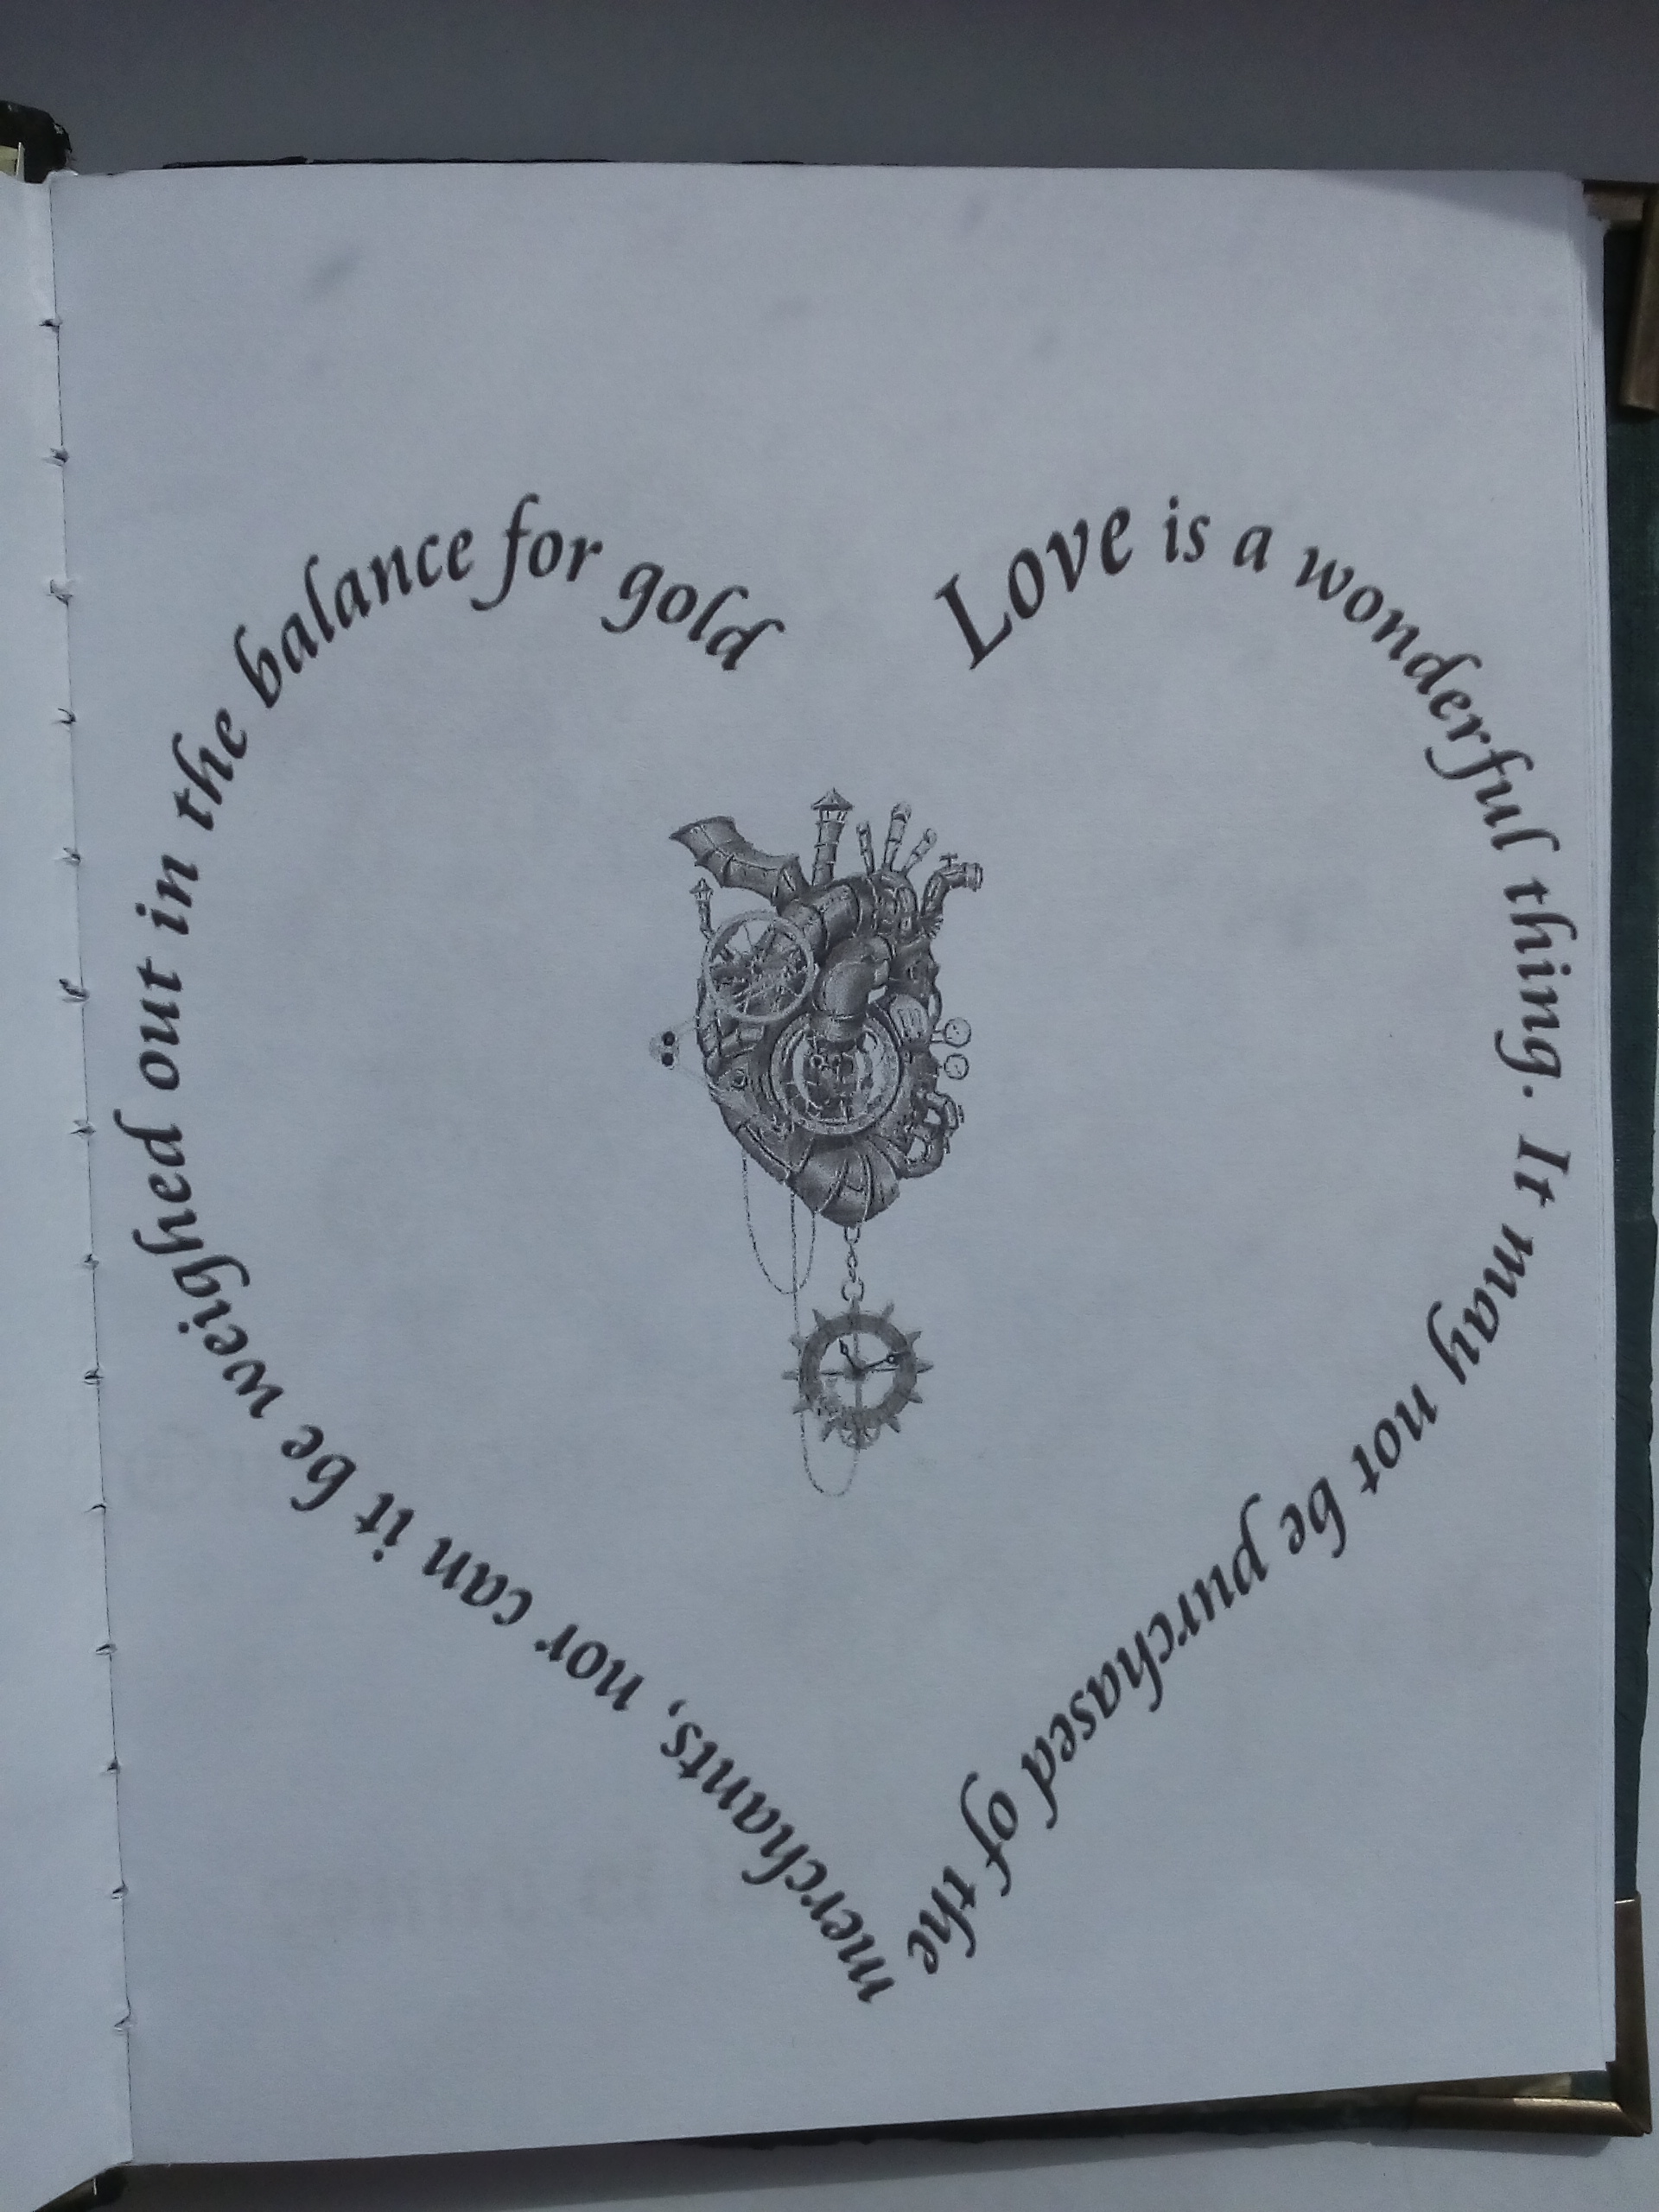 Love is a wonderful thing. It may not be purchased of the merchants, nor can it be weighed out in the balance for gold